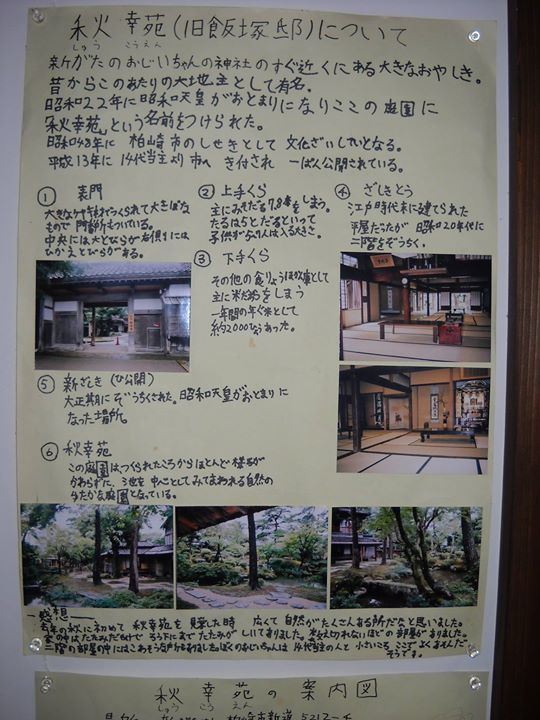 秋幸苑(旧飯塚邸)について
しゅう こうえん
新がたのおじいちゃんの神社のすぐ近くにある大きなおやしき。
昔からこのあたりの大地主として有名。
昭和22年に昭和天皇がおとまりになりここの庭園に
「秋幸苑」という名前をつけられた。
昭和48年に 柏崎市のしせきとして 文化ざいしていとなる。
平成13年に 14代当主より市へ き付され 一ぱん公開されている。
① 表門
大きなケヤキ材でつくられて大きぼな
もので門番所もついている。
中央には大とびらが右側りには
ひかえとびらがある。
② 上手くら
主にみそだる7,8本をしまう。
たるは5と だるといって
子供が
入る大きさ。
③ 下手くら
その他の食りょうほかん庫として
主に米だわらをしまう
一年間の年ぐ米として
約2000
あった。
④ ざしきとう
江戸時代末に建てられた
平屋だったが 昭和20年代に
二階をぞうちく。
⑤ 新ざしき (ひ公開)
大正期にぞうちくされた。昭和天皇がおとまりに
なった場所。
⑥ 秋幸苑
この庭園はつくられたころからほとんど様子が
かわらずに、池を中心としてみてまわれる自然の
ゆたかな庭園となっている。
感想
去年の秋に初めて 秋幸苑を見学した時 広くて自然がたくさんある所だなと思いました。
家の中はたたみだらけで ろう下にまでたたみがしいてありました。数え切れないほどの部屋がありました。
二階の部屋の中には
ありました。ぼくのおじいちゃんは 14代当主の人と 小さいころ ここでよくあそんだ
そうです。
秋幸苑の案内図
しゅう こう えん